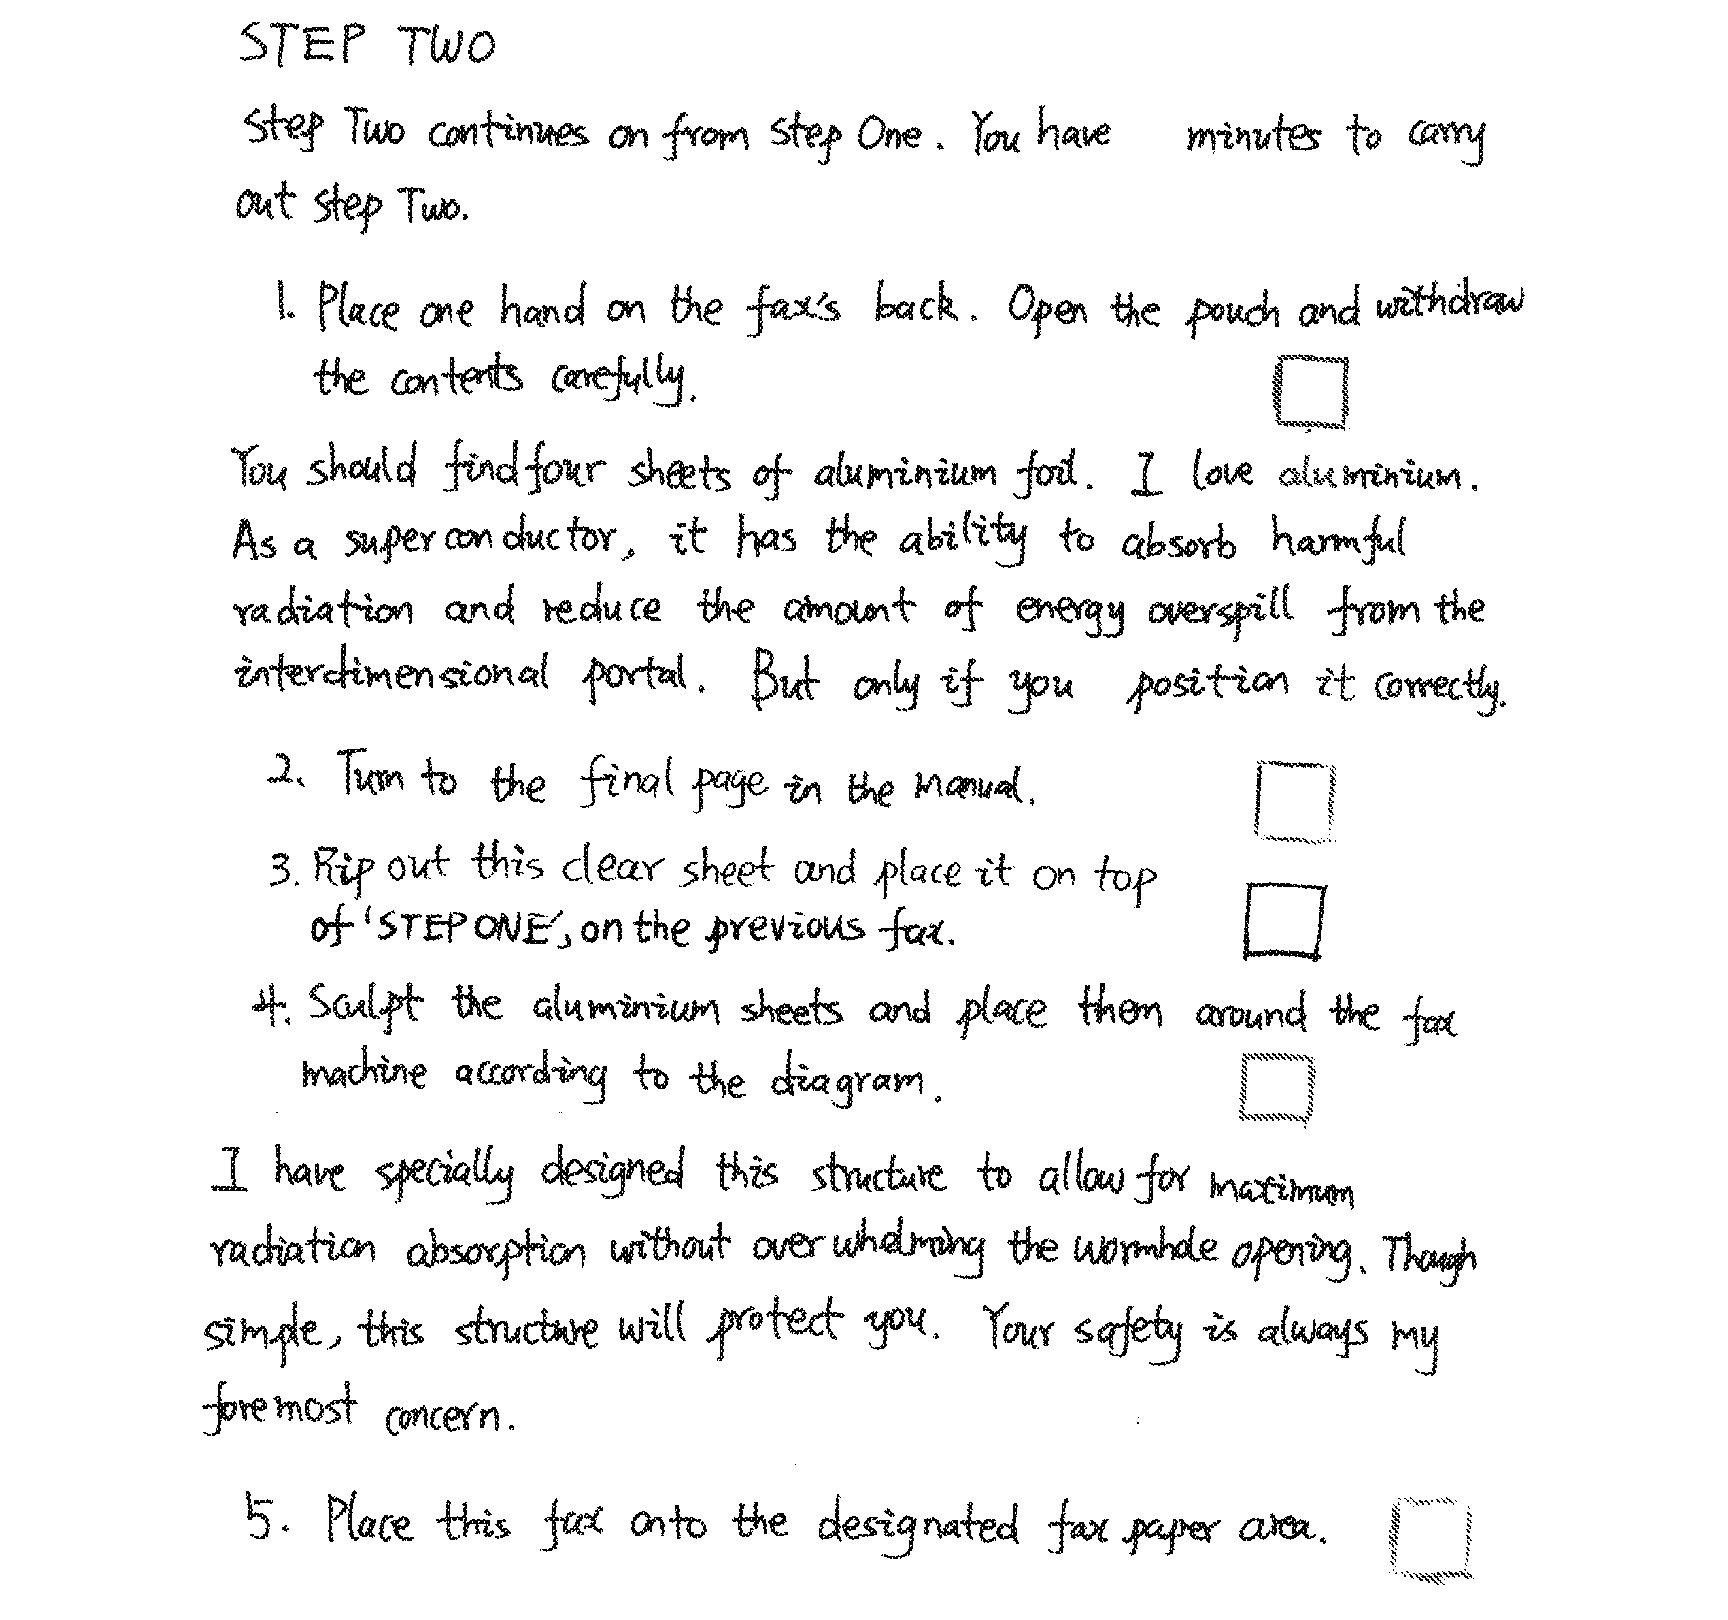 STEP TWO
Step Two continues on from Step One. You have minutes to carry
out step Two.
1. Place one hand on the fax's back. Open the pouch and withdraw
the contents carefully.
You should find four sheets of aluminium foil. I love aluminium.
As a superconductor, it has the ability to absorb harmful
radiation and reduce the amount of energy overspill from the
interdimensional portal. But only if you position it correctly.
2. Turn to the final page in the manual.
3. Rip out this clear sheet and place it on top
of 'STEP ONE', on the previous fax.
4. Sculpt the aluminium sheets and place them around the fax
machine according to the diagram.
I have specially designed this structure to allow for maximum
radiation absorption without overwhelming the wormhole opening. Though
simple, this structure will protect you. Your safety is always my
foremost concern.
5. Place this fax onto the designated fax paper area.